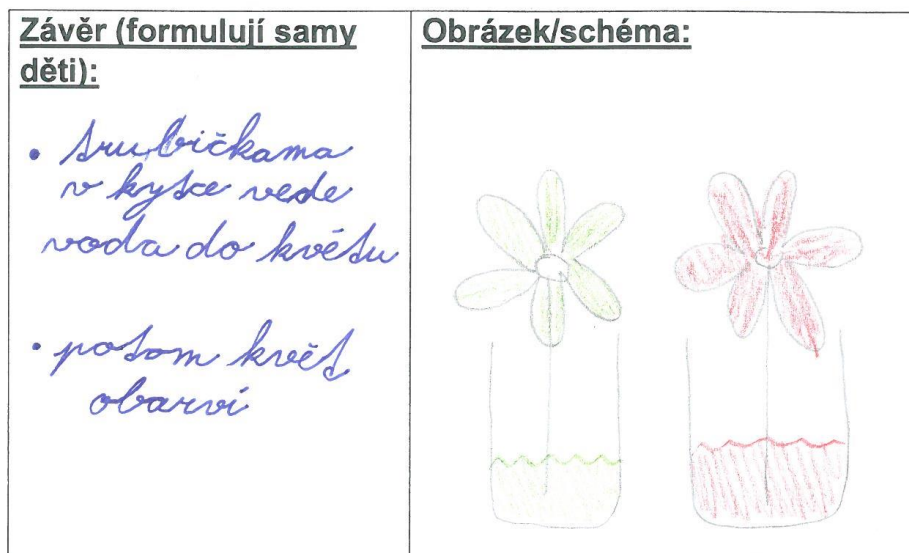 Závěr (formulují samy
děti):
• trubičkama
v kytce vede
voda do květu
• potom květ
obarví
Obrázek/schéma: